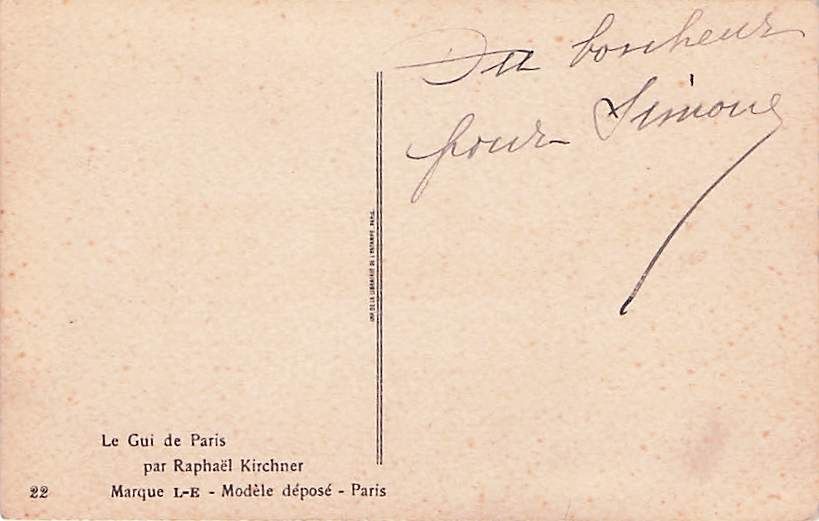 Du bonheur
pour Simone
IMP. DE LA LIBRAIRIE DE L'ESTAMPE, PARIS.
Le Gui de Paris
par Raphaël Kirchner
22 Marque L-E - Modèle déposé - Paris